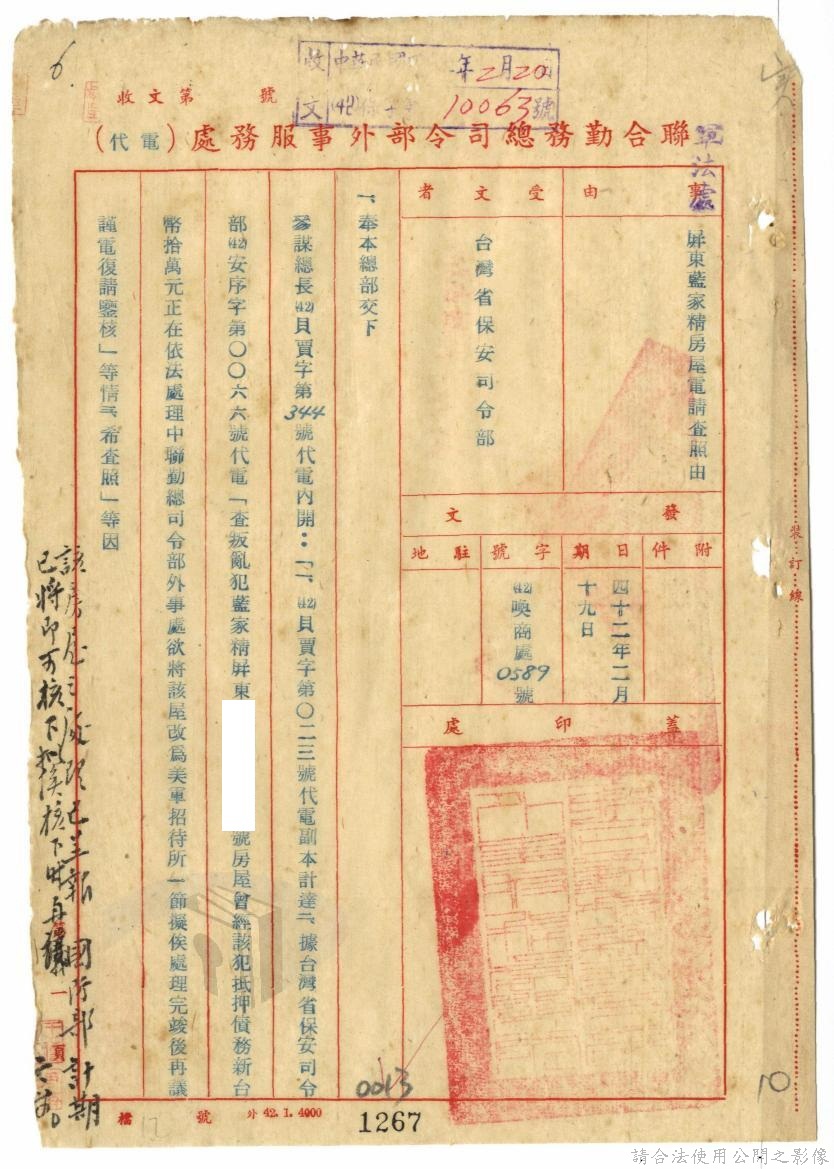 6.
收文第　　號
收 中華民國　年2月20
文　10063號
軍法處
聯合勤務總司令部外事服務處（代電）
事由
屏東藍家精房屋電請查照由
受文者
台灣省保安司令部
發文
附件
日期
四十二年二月十九日
字號
(42)喚商處0589號
駐地
蓋印處
一、奉本總部交下
參謀總長(42)貝賈字第344號代電內開：「一、(42)貝賈字第〇二三號代電副本計達二、據台灣省保安司令
部(42)安序字第〇〇六六號代電「查叛亂犯藍家精屏東　　號房屋曾經該犯抵押債務新台
幣拾萬元正在依法處理中聯勤總司令部外事處欲將該屋改為美軍招待所一節擬俟處理完竣後再議
謹電復請鑒核」等情三、希查照」等因
該房屋之處理已呈報國防部計期
已將即可核下擬俟核下時再
裝訂線
0013
10
檔　號
12
外 42.1.4000
1267
請合法使用公開之影像